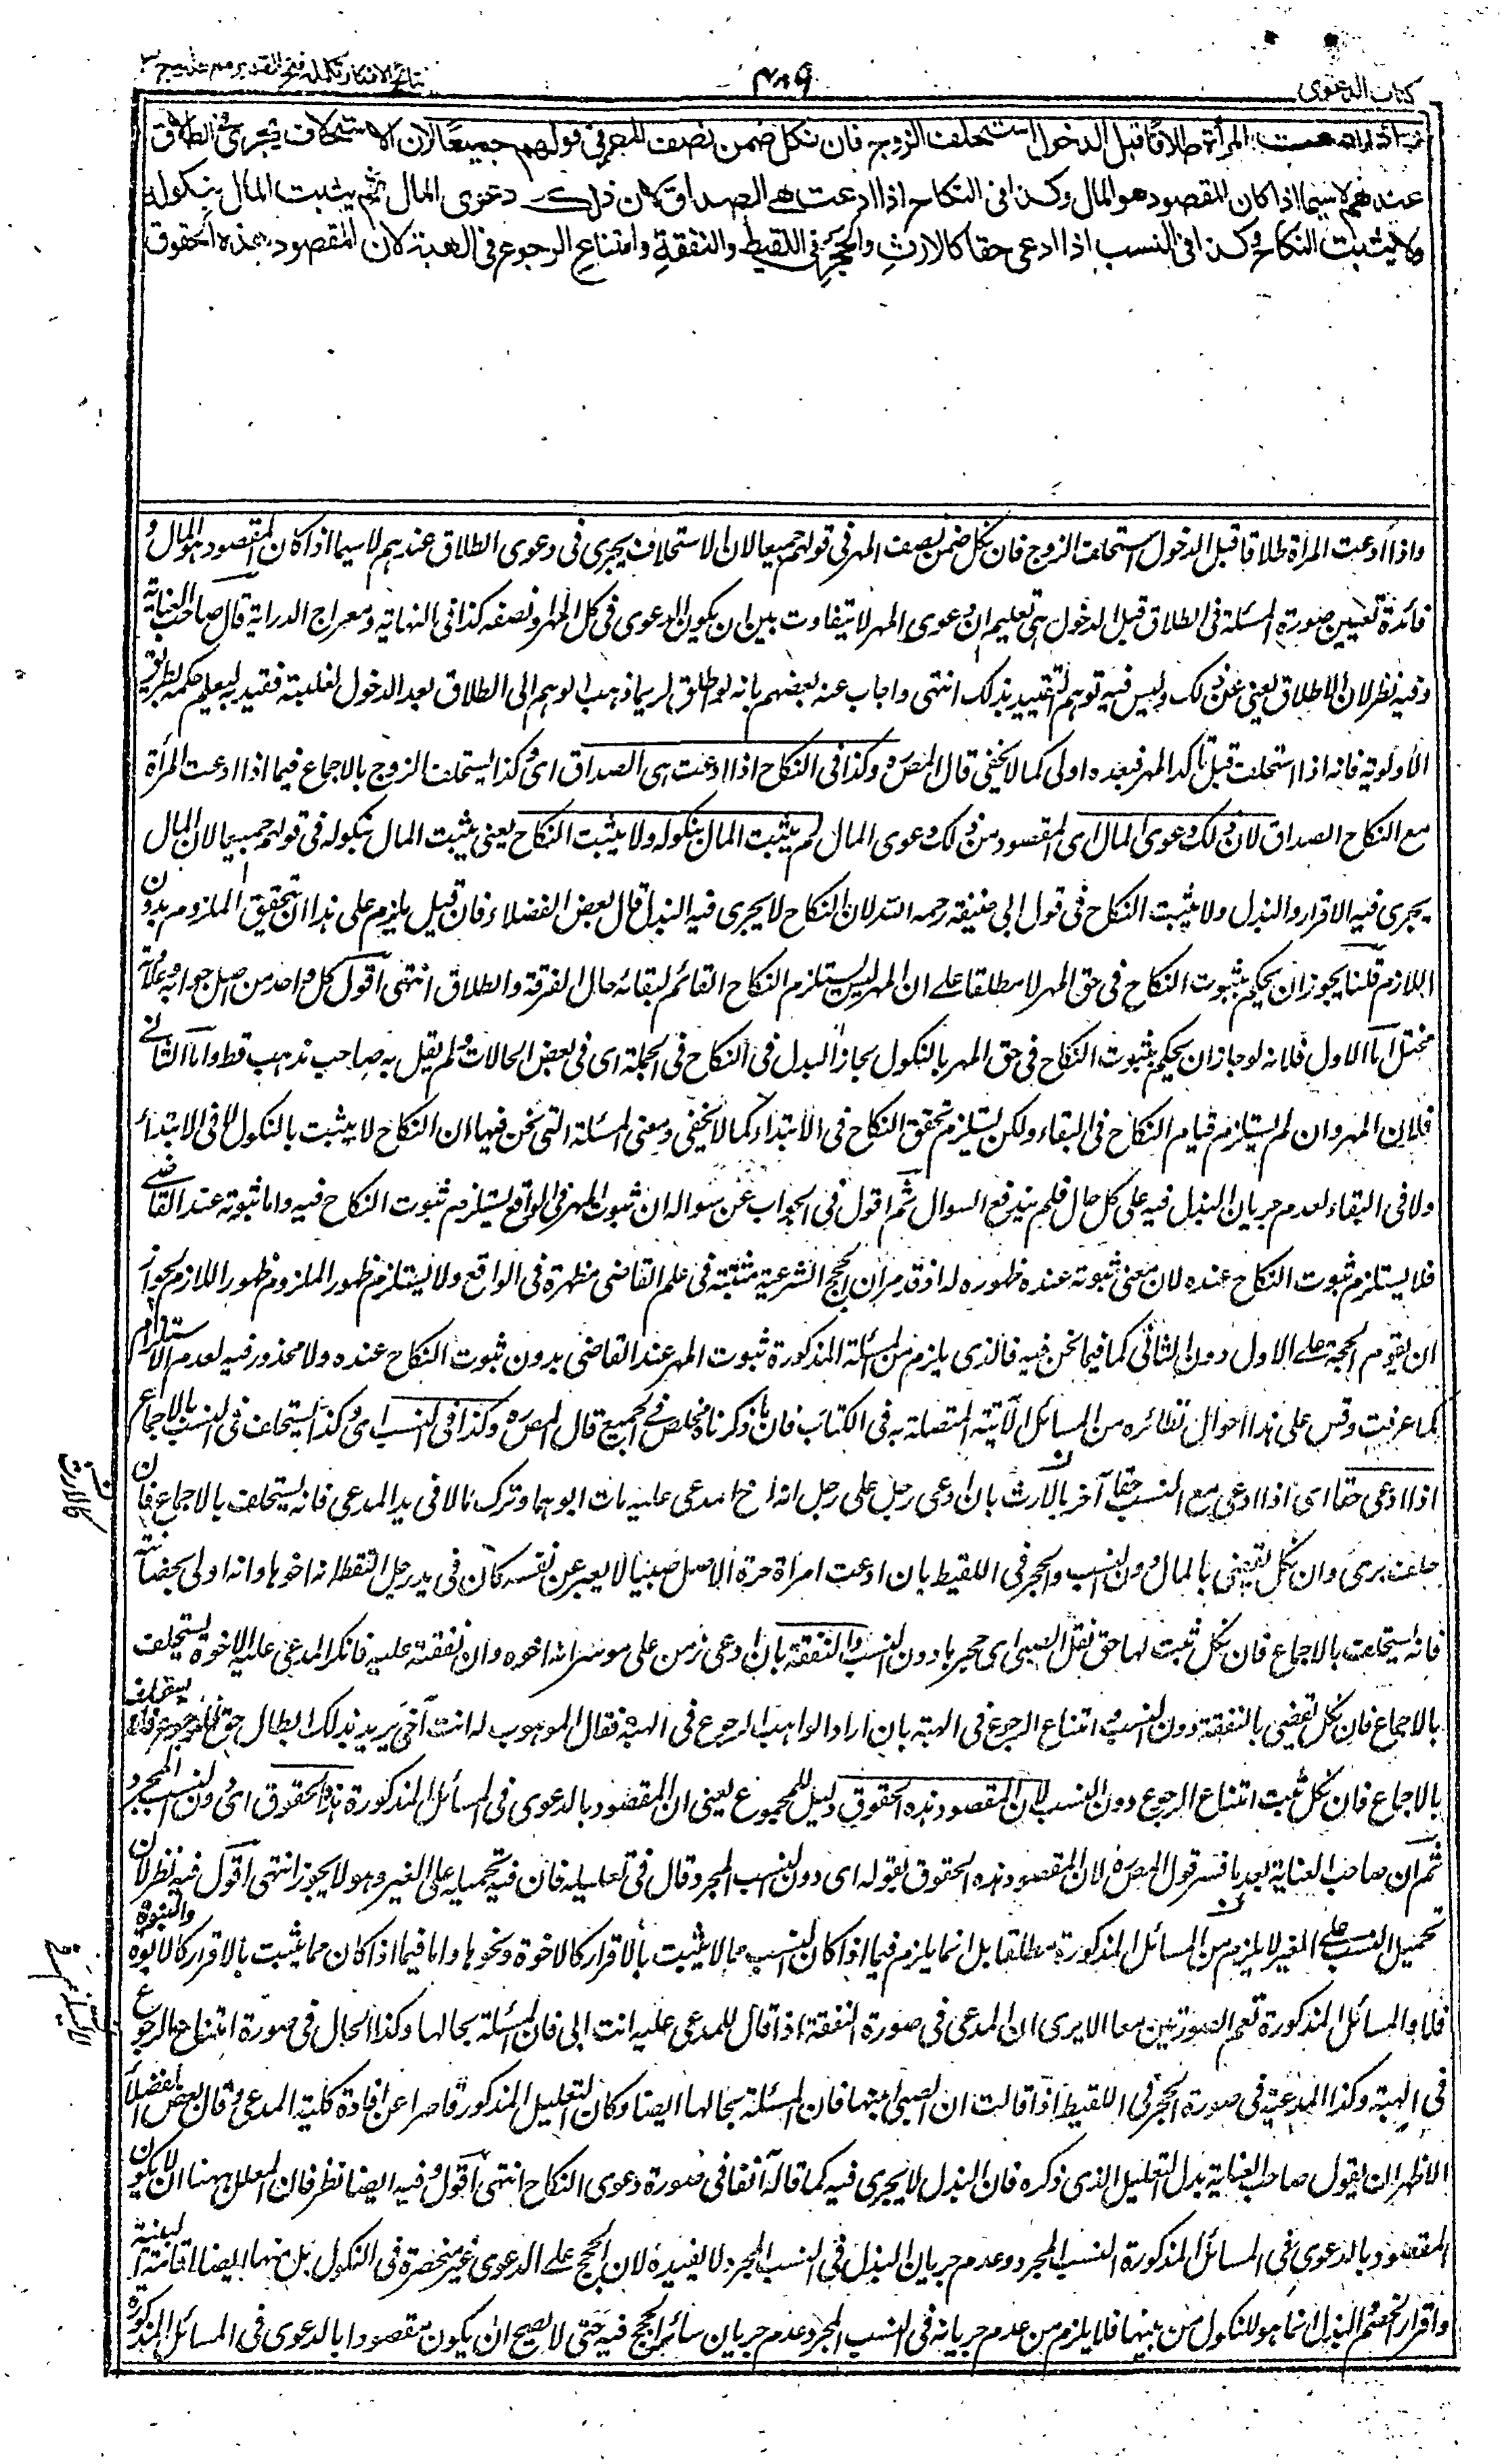 كتاب الدعوى
٤٨٩
نتائج الافكار تكمله فتح القدير مع هدايه ج ٣
المرأة طلاقا قبل الدخول استحلف الزوج فان نكل ضمن نصف المهر في قولهم جميعاً لان الاستحلاف يجرى في الطلاق
عندهم لاسيما اذا كان المقصود هو المال وكذا في النكاح اذا ادعت هي الصداق لان ذلك دعوى المال ثم يثبت المال بنكوله
ولا يثبت النكاح وكذا في النسب اذا ادعى حقا كالارث والحجر في اللقيط والنفقة وامتناع الرجوع في الهبة لان المقصود هذه الحقوق
واذا ادعت المرأة طلاقا قبل الدخول استحلف الزوج فان نكل ضمن نصف المهر في قولهم جميعا لان الاستحلاف يجرى في دعوى الطلاق عندهم لاسيما اذا كان المقصود هو المال و
فائدة تعيين صورة المسئلة في الطلاق قبل الدخول هي تعليم ان دعوى المهر لا يتفاوت بين ان يكون الدعوى في كل المهر او نصفه كذا في النهاية ومعراج الدراية قال صاحب العناية
وفيه نظر لان الاطلاق يغنى عن ذلك وليس فيه توهم التقييد بذلك انتهى واجاب عنه بعضهم بانه لو اطلق لربما ذهب الوهم الى الطلاق بعد الدخول لغلبته فقيد به ليعلم حكمه بطريق
الأولوية فانه اذا استحلف قبل تأكد المهر فبعده اولى كما لا يخفى قال المصره وكذا في النكاح اذا ادعت هي الصداق اى وكذا يستحلف الزوج بالاجماع فيما اذا ادعت المرأة
مع النكاح الصداق لان ذلك دعوى المال اى المقصود من ذلك دعوى المال ثم يثبت المال بنكوله ولا يثبت النكاح يعنى يثبت المال بنكوله في قولهم جميعا لان المال
يجرى فيه الاقرار والبذل ولا يثبت النكاح في قول ابى حنيفة رحمه الله لان النكاح لا يجرى فيه البذل قال بعض الفضلاء فان قيل يلزم على هذا ان تحقيق الملزوم بدون
اللازم قلنا يجوز ان يحكم بثبوت النكاح في حق المهر لا مطلقا على ان المهر ليس يستلزم النكاح القائم لبقائه حال الفرقة والطلاق انتهى اقول كل واحد من اصل جوابه وعلاوته
مختل اما الاول فلانه لو جاز ان يحكم بثبوت النكاح في حق المهر بالنكول لجاز البذل في النكاح في الجملة اى في بعض الحالات ولم يقل به صاحب مذهب قط واما الثاني
فلان المهر وان لم يستلزم قيام النكاح في البقاء ولكن يستلزم تحقق النكاح في الابتداء كما لا يخفى ومعنى المسئلة التى نحن فيها ان النكاح لا يثبت بالنكول لا في الابتداء
ولا في البقاء لعدم جريان البذل فيه على كل حال فلم يندفع السوال ثم اقول في الجواب عن سواله ان ثبوت المهر في الواقع يستلزم ثبوت النكاح فيه واما ثبوته عند القاضى
فلا يستلزم ثبوت النكاح عنده لان معنى ثبوته عنده ظهوره له اذ قد مر ان الحجج الشرعية مثبتة في علم القاضى مظهرة في الواقع ولا يستلزم ظهور الملزوم ظهور اللازم لجواز
ان يقوم الحجة على الاول دون الثانى كما فيما نحن فيه فالذى يلزم من المسئلة المذكورة ثبوت المهر عند القاضى بدون ثبوت النكاح عنده ولا محذور فيه لعدم الاستلزام
كما عرفت وقس على هذا احوال نظائره من المسائل الآتية المتصلة به في الكتاب فان ما ذكرناه مخلص في الجميع قال المصره وكذا في النسب اى وكذا يستحلف في النسب بالاجماع
اذا ادعى حقا اى اذا ادعى مع النسب حقا آخر كالارث بان ادعى رجل على رجل انه اخ المدعى عليه مات ابوهما وترك مالا في يد المدعى فانه يستحلف بالاجماع فان
حلف برئ وان نكل يقضى بالمال دون النسب والحجر في اللقيط بان ادعت امرأة حرة الاصل صبيا لا يعبر عن نفسه كان في يد رجل التقطه انه اخوها وانه اولى بحضانته
فانه استحلف بالاجماع فان نكل ثبت لها حق نقل الصبى اى حجرها دون النسب والنفقة بان ادعى زمن على موسر انه اخوه وان نفقته عليه فانكر المدعى عليه الاخوة يستحلف
بالاجماع فان نكل يقضى بالنفقة دون النسب وامتناع الرجوع في الهبة بان اراد الواهب الرجوع في الهبة فقال الموهوب له انت اخى يريد بذلك ابطال حق الرجوع فانه يستحلف
بالاجماع فان نكل ثبت امتناع الرجوع دون النسب لان المقصود هذه الحقوق دليل للمجموع يعنى ان المقصود بالدعوى في المسائل المذكورة هذه الحقوق اى دون النسب المجرد
ثم ان صاحب العناية بعد ما فسر قول المصره لان المقصود هذه الحقوق بقوله اى دون النسب المجرد قال في تعليله فان فيه تحميله على الغير وهو لا يجوز انتهى اقول فيه نظر لان
تحميل النسب على الغير لا يلزم من المسائل المذكورة مطلقا بل انما يلزم فيما اذا كان النسب مما لا يثبت بالاقرار كالاخوة ونحوها واما فيما اذا كان مما يثبت بالاقرار كالابوة والبنوة
فلا والمسائل المذكورة تعم الصورتين معا الا يرى ان المدعى في صورة النفقة اذا قال للمدعى عليه انت ابى فان المسئلة بحالها وكذا الحال في صورة امتناع الرجوع
في الهبة وكذا المدعية في صورة الحجر في اللقيط اذا قالت ان الصبى ابنها فان المسئلة بحالها ايضا وكان التعليل المذكور قاصرا عن افادة كلية المدعى وقال بعض الفضلاء
الاظهر ان يقول صاحب العناية بدل التعليل الذى ذكره فان البذل لا يجرى فيه كما قاله آنفا في صورة دعوى النكاح انتهى اقول وفيه ايضا نظر فان المعلل ههنا ان لا يكون
المقصود بالدعوى في المسائل المذكورة النسب المجرد وعدم جريان البذل في النسب المجرد لا يفيده لان الحجج على الدعوى غير منحصرة في النكول بل منها ايضا اقامة البينة
واقرار الخصم والبذل انما هو للنكول من بينها فلا يلزم من عدم جريانه في النسب المجرد عدم جريان سائر الحجج فيه حتى لا يصح ان يكون مقصودا بالدعوى في المسائل المذكورة